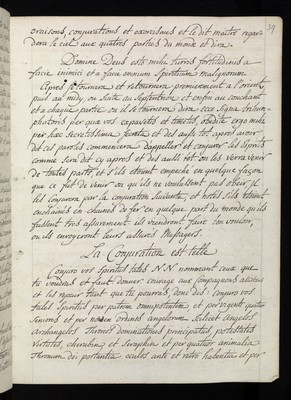 39
oraisons, conjurations et exorcismes et le dit maitre regar
dera le ciel aux quatres parties du monde et dira.
Domine Deus esto mihi turris fortitudinis a
facie inimici et a facie omnium Spirituum malignorum
Après retournera et retournera premierement a l'orient
puis au midy ou Sinta au Septentrion et enfin au couchant
et a chaque partie ou il se tournera dira ecce Signa
per hac Sacratissima et des aussi tot apres avoir
dit ces paroles commencera d'appeller et conjurer les Esprits
comme sera dit cy apres et des aussi tot on les verra venir
de toutes parts et s'ils etoient empeché en quelque façon
que ce fut de venir ou qu'ils ne voulussent pas obeir, il
les conjurera par la conjuration Suivante, et
enchainés en chaines de fer en quelque part du monde qu'ils
fussent tres assurement ils viendront faire ton vouloir
ou ils envoyeront leurs Messagers.
La Conjuration est telle
Conjuro vos Spiritus tales N.N. nommant ceux que
tu voudras et faut donner courage aux compagnons
et les que tu pourras, donc dis: conjuro vos
tales Spiritus per patrem omnipotentem et per
et per novem ordines angelorum Scilicet Angelos
Archangelos Thronos dominationes principatus potestates
Virtutes, cherubin et Seraphin et per quatuor animalia
Thronum dei portantia oculos ante et retro habentia et per